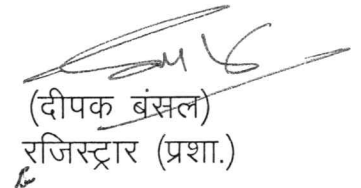 (दीपक बंसल)
रजिस्ट्रार (प्रशा.)